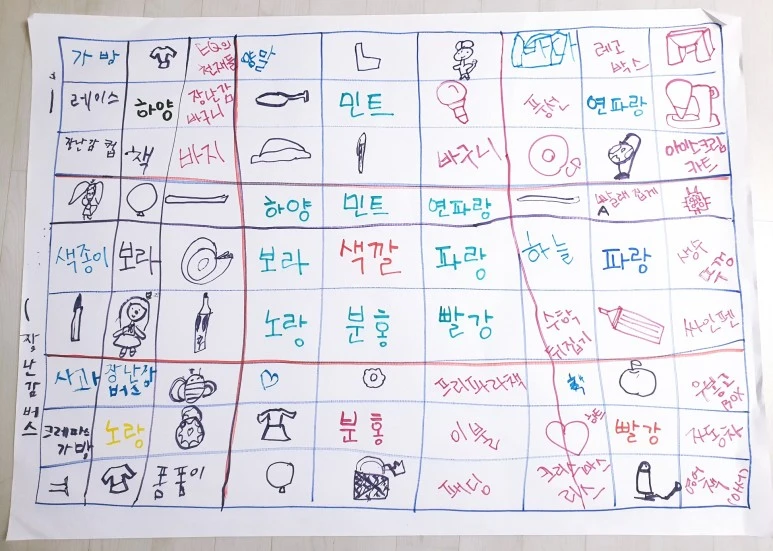 가방 EQ의 천재들 양말 바다 레고 박스
레이스 하양 장난감 바구니 민트 풍선 연파랑
장난감 컵 책 바지 바구니 아이스크림 카트
하양 민트 연파랑 빨래집게
색종이 보라 보라 색깔 파랑 하늘 파랑 생수 뚜껑
노랑 분홍 빨강 수학 뒤집기 싸인펜
사과 장난감 버스 프리파라책 책 우롱고 BOX
크레파스 가방 노랑 분홍 이불 빨강 자동차
폼폼이 패딩 크리스마스 리스 영어책 (ORT)
장난감버스